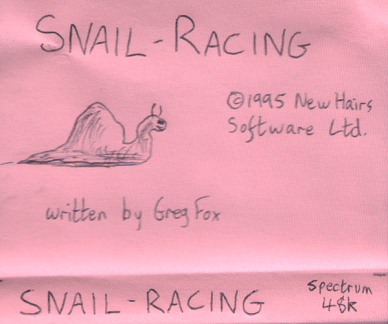 SNAIL-RACING
©1995 New Hairs
Software Ltd.
written by Greg Fox
SNAIL-RACING
Spectrum
48k